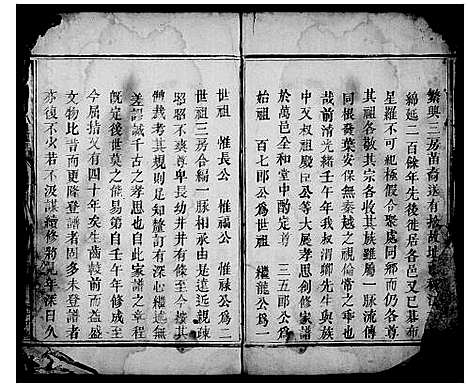 繁興三房苗裔迭有
綿延二百餘年先後徙居各邑又已碁布
星羅不可紀極假令聚處同鄉而仍各尊
其祖各敬其宗各收其族雖屬一脈流傳
同根發葉安保無秦越之視倫常之乖也
哉前清光緒壬午年我叔清卿先生與族
中又叔祖慶臣公等大展孝思創修家譜
於萬邑全和堂中酌定 三五郎公為
始祖 百七郎公為世祖 繼龍公為一
世祖 惟長公 惟福公 惟祿公為二
世祖三房合編一脈相承由是遠近親疎
昭昭不爽尊卑長幼井井有條至今摟其
體裁考其規則足知釐訂有深心纔無
差謬誠千古之孝思也自此家譜之章程
既定後世莫之能易第自壬午年修成至
今屈指又有四十年矣生齒較前而益盛
文物比昔而更隆登譜者固多未登譜者
亦復不火若不汲謀續修將見年深日久